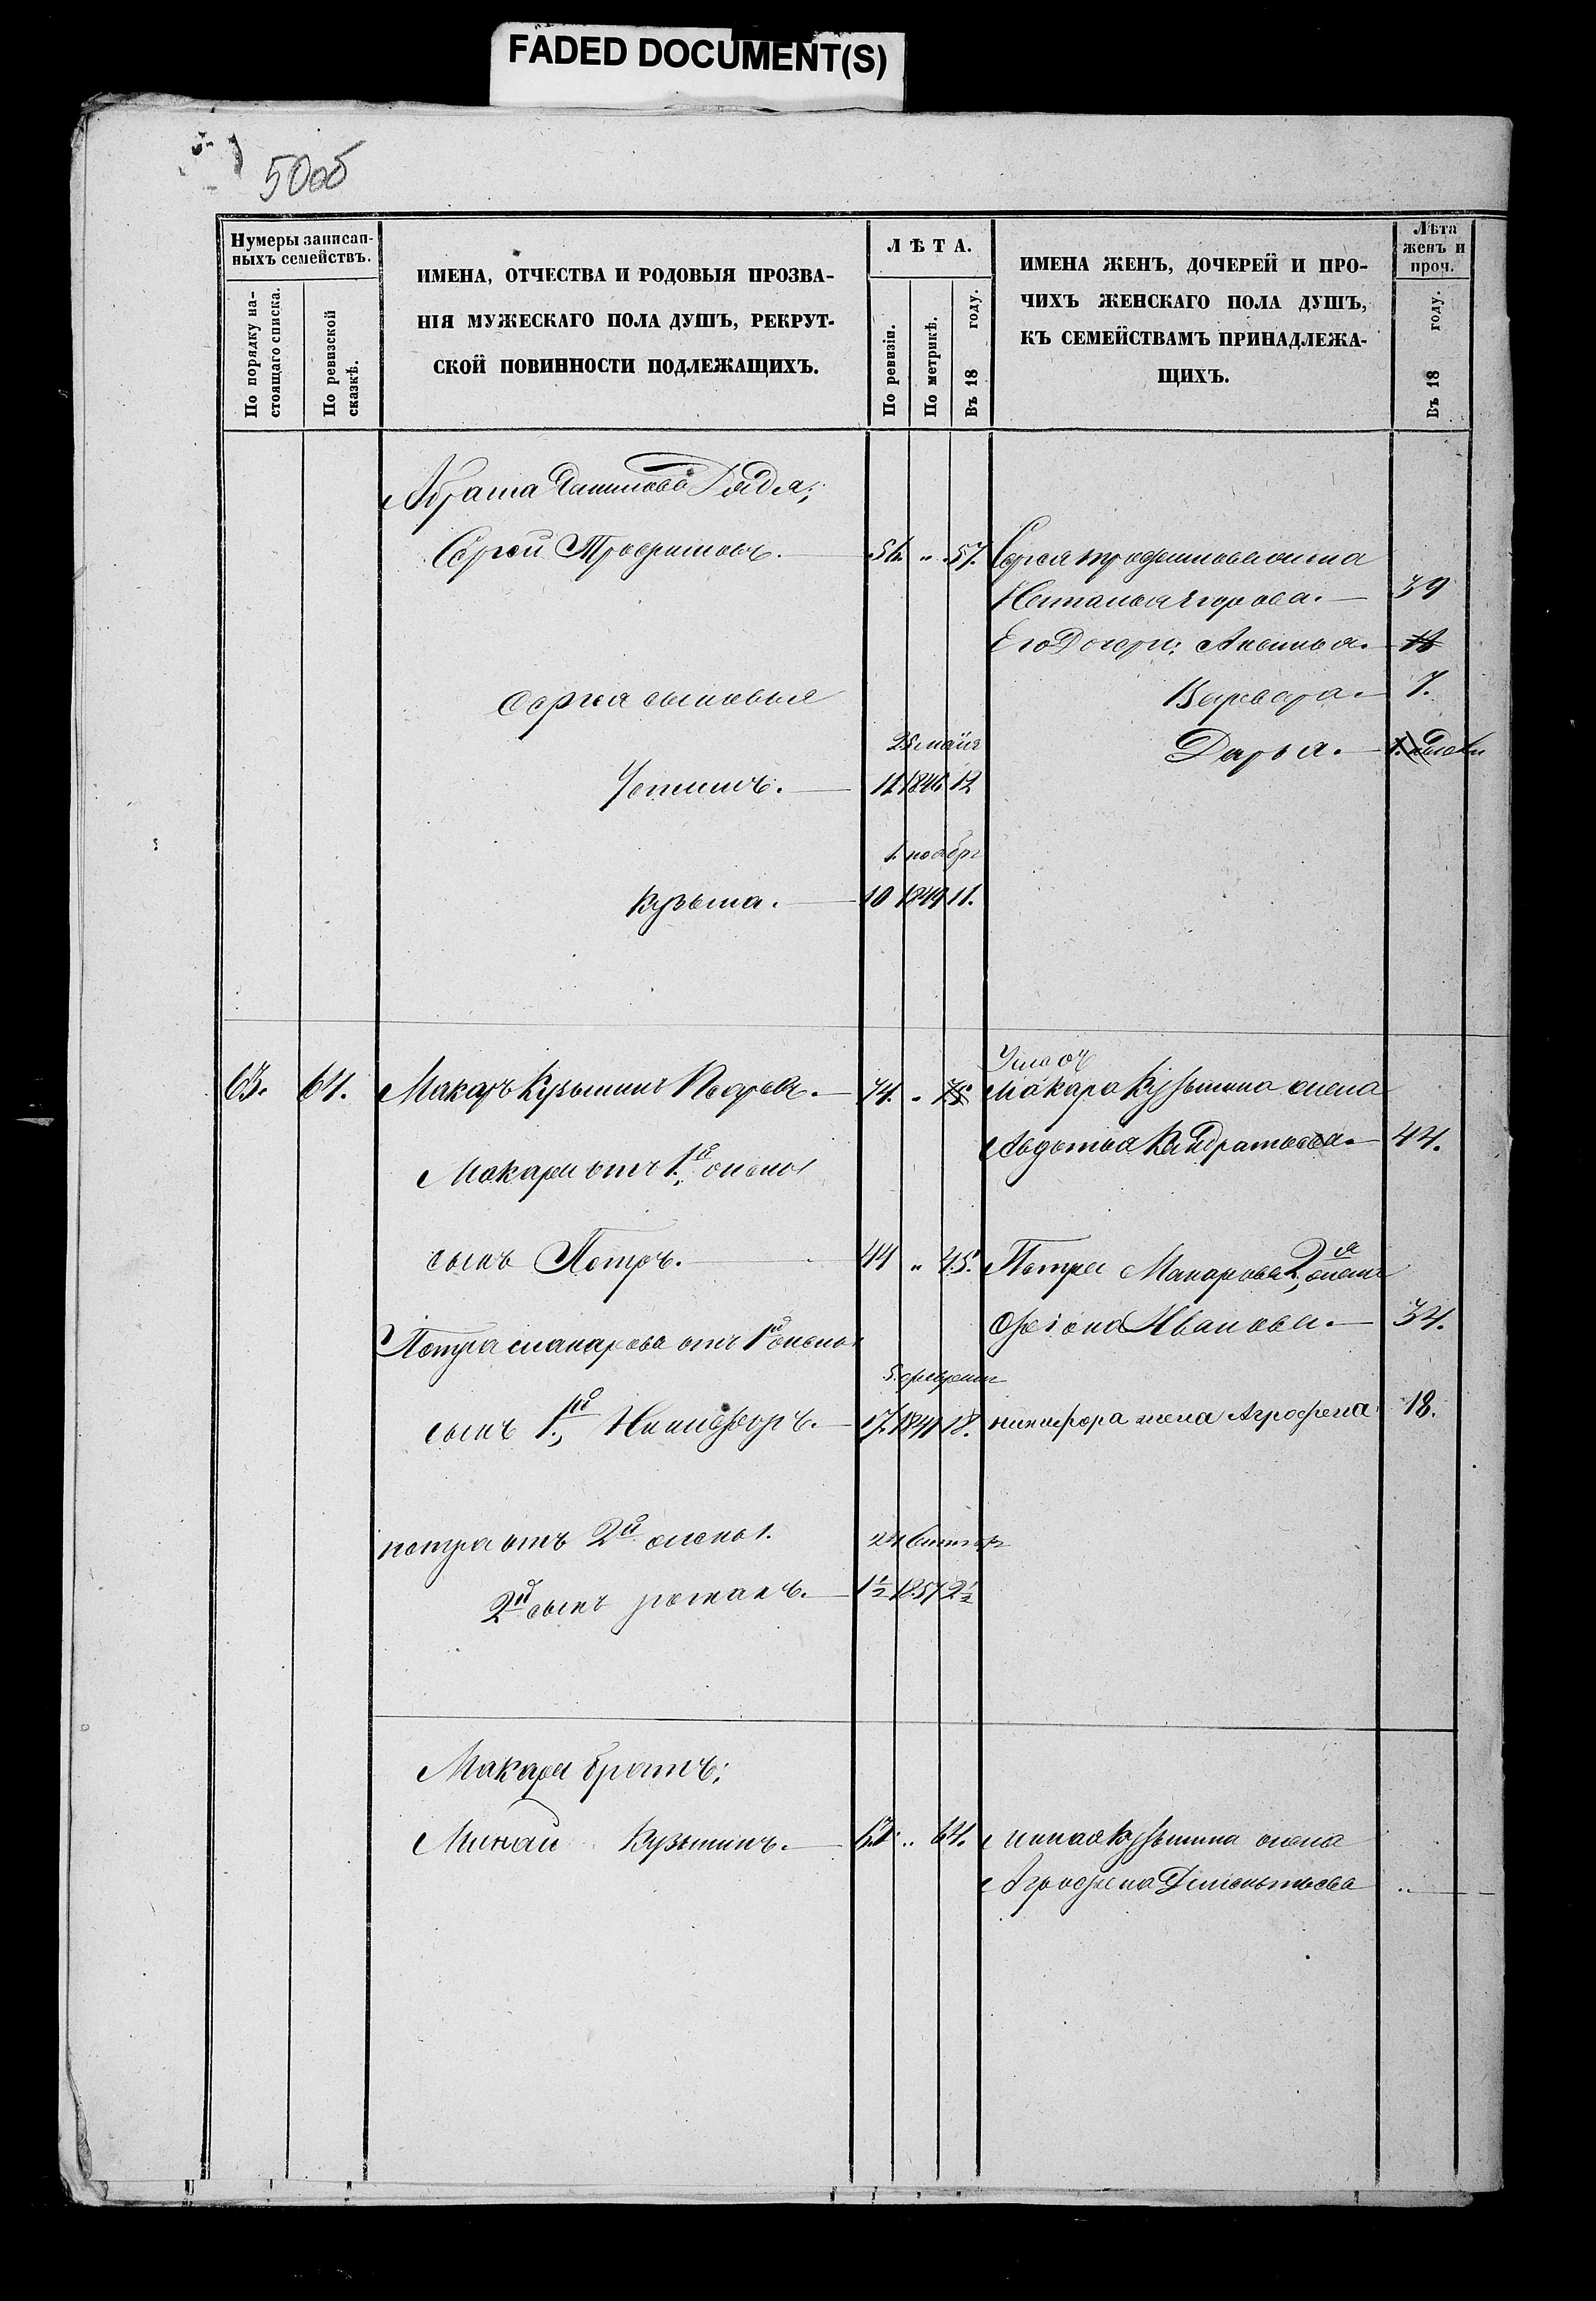 FADED DOCUMENT(S)
50об
Нумеры записан-
ныхъ семействъ.
По порядку на-
стоящаго списка.
По ревизской
сказкѣ.
ИМЕНА, ОТЧЕСТВА И РОДОВЫЯ ПРОЗВА-
НІЯ МУЖЕСКАГО ПОЛА ДУШЪ, РЕКРУТ-
СКОЙ ПОВИННОСТИ ПОДЛЕЖАЩИХЪ.
ЛѢТА.
По ревизіи.
По метрикѣ.
Въ 18 году.
ИМЕНА ЖЕНЪ, ДОЧЕРЕЙ И ПРО-
ЧИХЪ ЖЕНСКАГО ПОЛА ДУШЪ,
КЪ СЕМЕЙСТВАМЪ ПРИНАДЛЕЖА-
ЩИХЪ.
Лѣта
женъ и
проч.
Въ 18 году.
Дядя;
Сергей Трофимовъ. 56. „ 57. Сергея трофимова жена
Наталья Егорова. 39
Его Дочери: Аксинья.
сергея сыновья Варвара. 7.
25 майя Дарья.
Устинъ. 12
1. ноябр
Кузьма. 10 1849 11.
63. 64. Макаръ Кузьминъ 74. „ 75 Макара Кузьмина жена
Авдотья Кандратьева. 44.
Макара отъ 1й жены
сынъ Петръ. 44 „ 45. Петра Макарова 2я жена
Ивановa. 34.
Петра макарова отъ 1й жены
5. февраля
сынъ 1й Никифоръ. 17. 1841 18. никифора жена Агрофена 18.
петра отъ 2й жены.
24
2й сынъ романъ. 1½ 1857 2½
Макара братъ;
Минай Кузьминъ. 63. „ 64. миная Кузьмина жена
Агрофена „